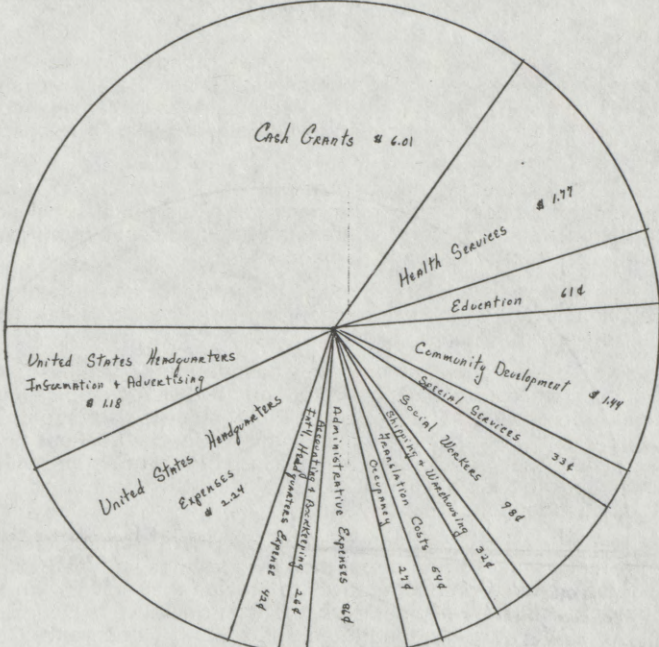 Cash Grants $ 6.01
Health Services $ 1.77
Education 61¢
Community Development $ 1.44
Special Services 33¢
Social Workers 98¢
Shipping & Warehousing 32¢
Translation Costs 64¢
Occupancy 27¢
Administrative Expenses 86¢
Accounting & Bookkeeping 26¢
Int'l. Headquarters Expense 42¢
United States Headquarters
Expenses
$ 2.24
United States Headquarters
Information & Advertising
$ 1.18